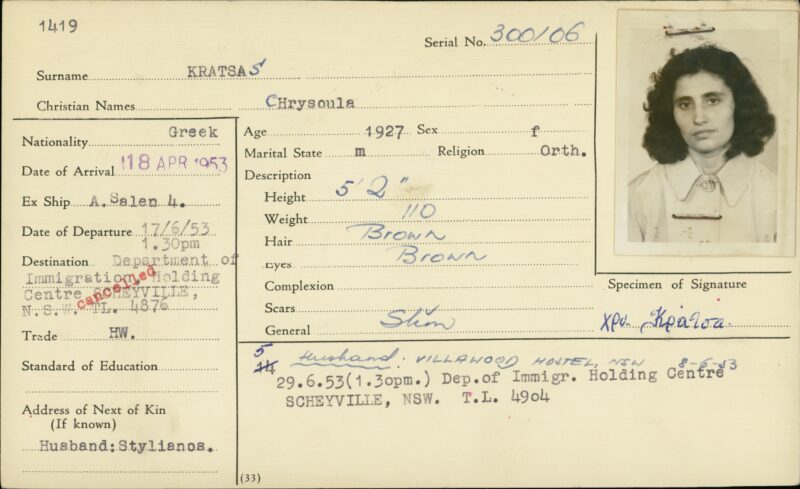 1419
Serial No. 300106
Surname KRATSAS
Christian Names CHrysoula
Nationality Greek
Date of Arrival 18 APR 1953
Ex Ship A.Salen 4.
Date of Departure 17/6/53
1.30pm
Destination Department of
Immigration Holding
Centre SCHEYVILLE,
N.S.W. TL. 4876
cancelled
Trade HW.
Standard of Education
Address of Next of Kin
(If known)
Husband:Stylianos.
Age 1927 Sex f
Marital State m Religion Orth.
Description
Height 5' 2"
Weight 110
Hair Brown
Eyes Brown
Complexion
Scars
General Slim
Specimen of Signature
Χρυ. Κράτσα.
5 Husband: VILLAWOOD HOSTEL, NSW 8-6-53
14
29.6.53(1.3opm.) Dep.of Immigr. Holding Centre
SCHEYVILLE, NSW. T.L. 49o4
(33)